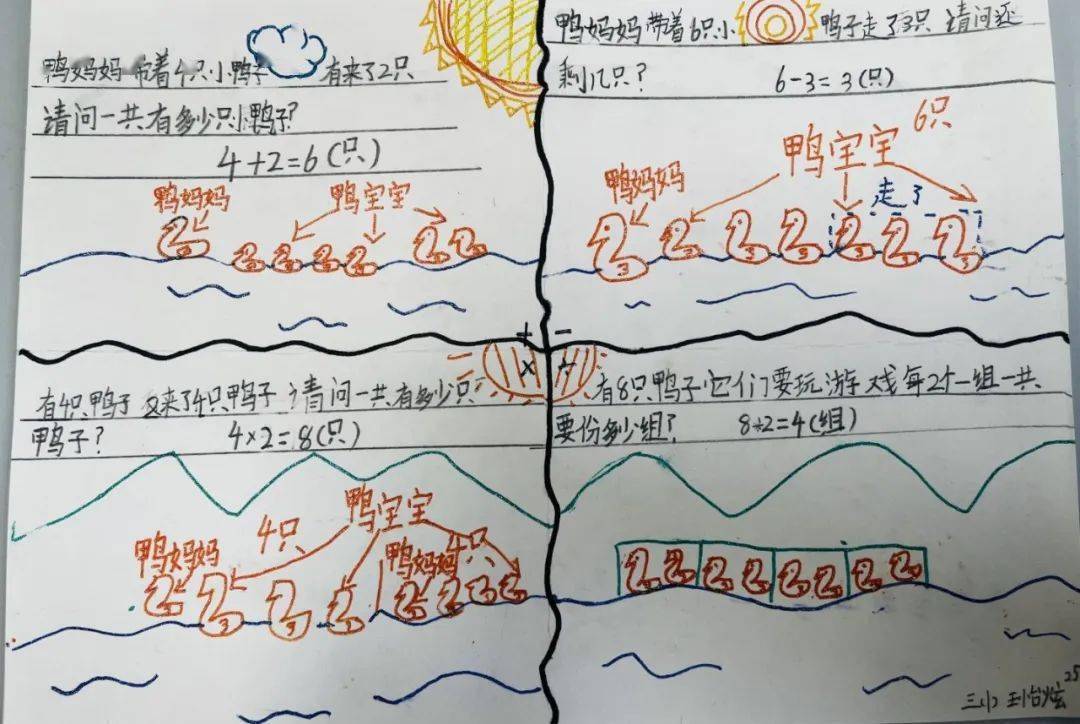 鸭妈妈带着4只小鸭子 有来了2只
请问一共有多少只小鸭子?
4+2=6(只)
鸭妈妈
鸭宝宝
鸭妈妈带着6只小鸭子走了3只 请问还
剩几只?
6-3=3(只)
鸭宝宝 6只
鸭妈妈
走了
+ -
× ÷
有4只鸭子又来了4只鸭子 请问一共有多少只
鸭子?
4×2=8(只)
鸭宝宝
4只
鸭妈妈
鸭妈妈
4只
有8只鸭子它们要玩游戏每2个一组一共
要份多少组?
8÷2=4(组)
25
三小